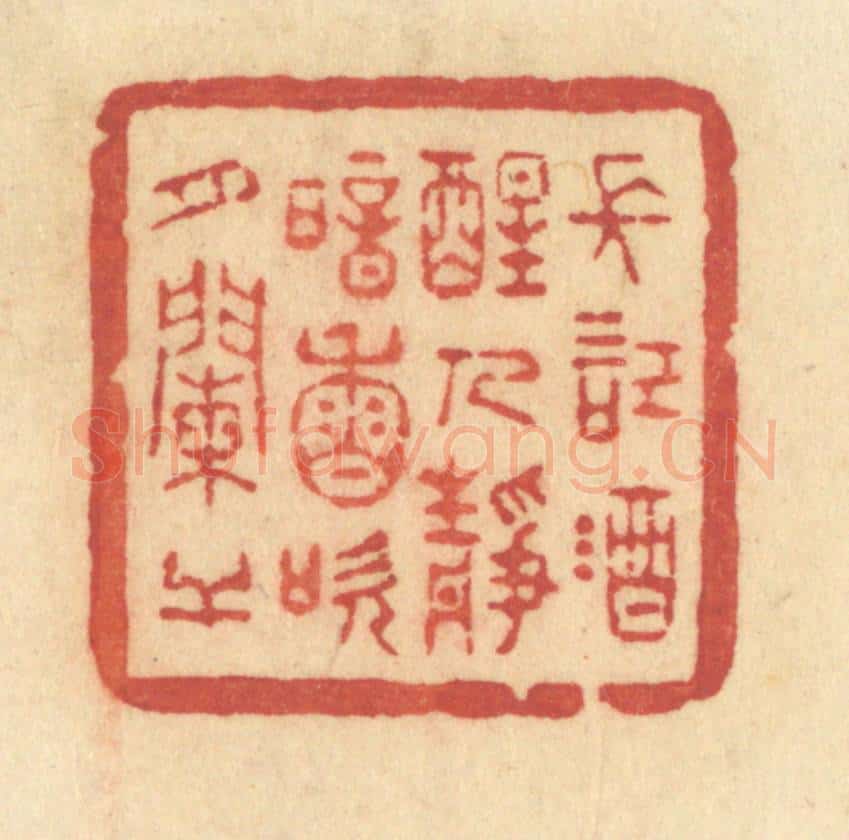 長記酒
醒人靜
暗香吹
月闌干
Shufawang.CN